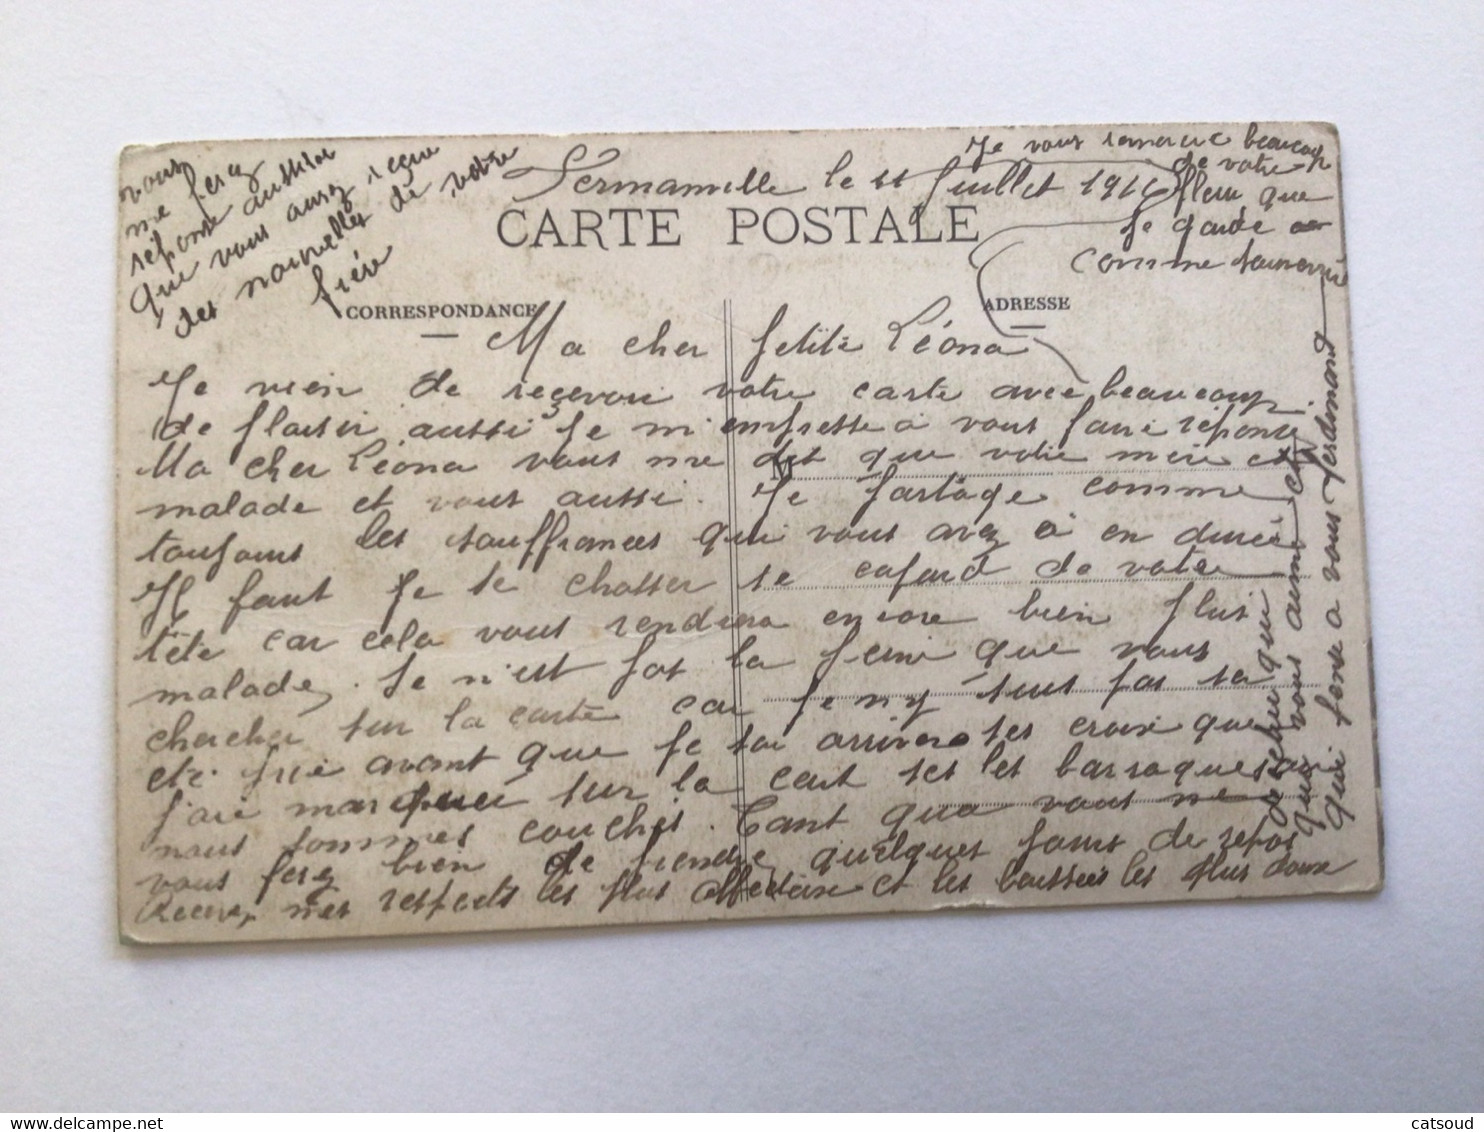 vous
me ferez
réponse aussitôt
que vous aurez reçue
des nouvelles de votre
frère
Sermamelle le 11 Juillet 191
Je vous remercie beaucoup
de votre
fleur que
je garde
comme souvenir
CARTE POSTALE
CORRESPONDANCE
ADRESSE
Ma cher petite Léona
Je vien de reçevoir votre carte avec beaucoup
de plaisir aussi je m'empresse a vous faire réponse
Ma cher Léona vous me dit que votre mère et
M
malade et vous aussi. Je partage comme
toujours les souffrances que vous avez à en durée
Il faut je le chasser se cafard de votre
tête car cela vous rendera encore bien plus
malade. Se n'est pas la peine que vous
chercher sur la carte car je n'y suis pas sa
été fric avant que je soi arriver ses croix que
j'aie marquer sur la cart ses les barraques ou
nous sommes coucher. Tant qua vous me
vous ferez bien de prendre quelques jours de repos
Recever mes respects les plus affectueux et les baissers les plus doux
de celui qui
qui vous aime et
qui pense a vous Ferdinand
catsoud
delcampe.net